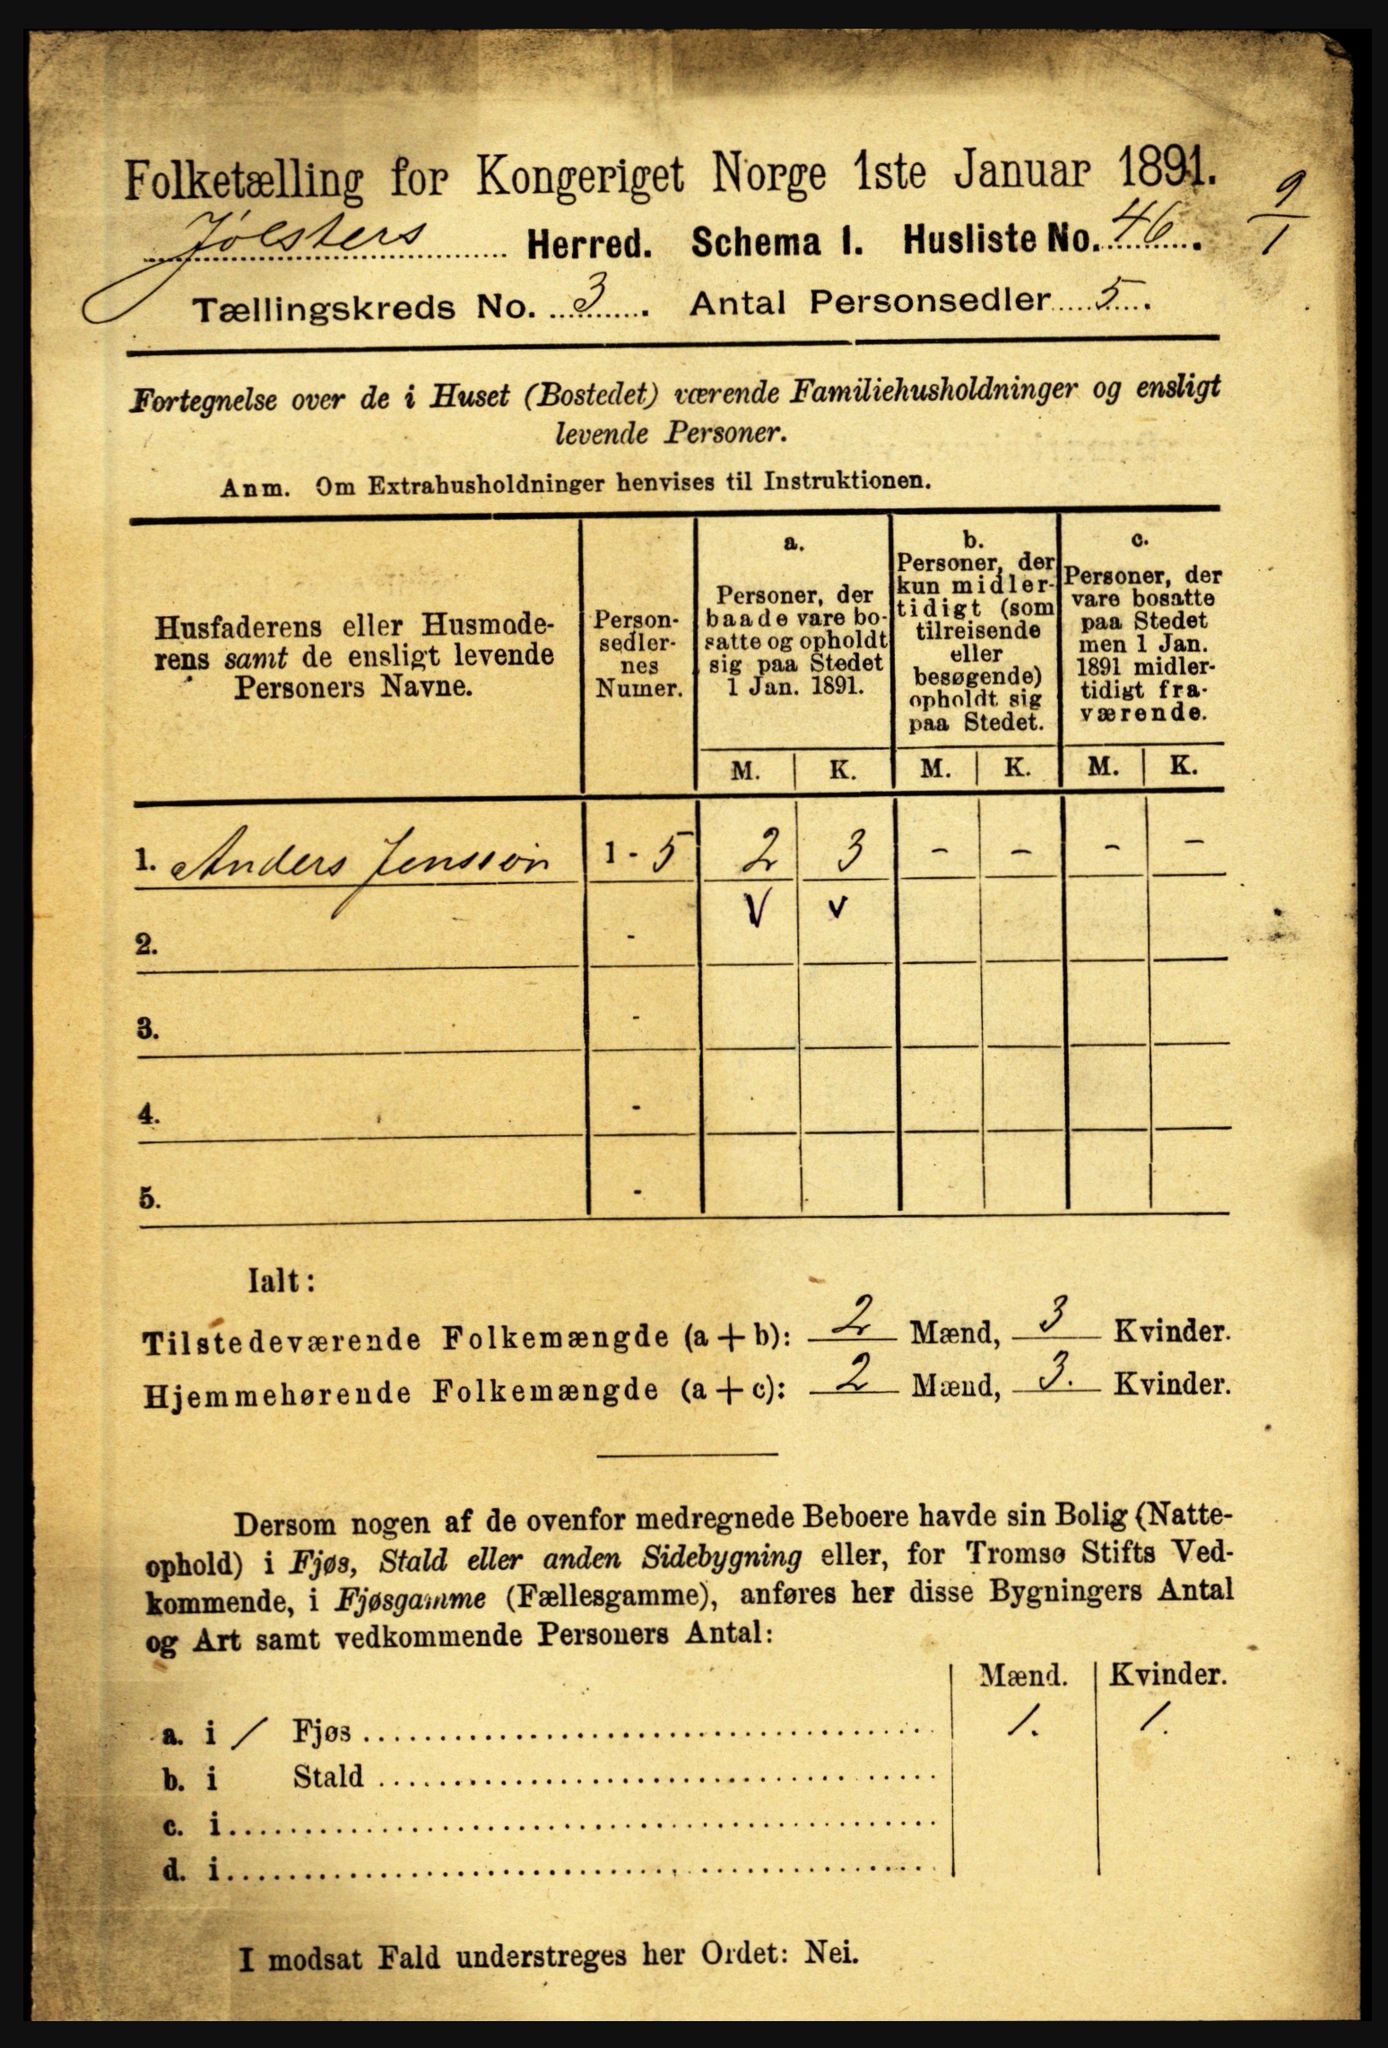 Folketælling for Kongeriget Norge 1ste Januar 1891.
9/1
Jölsters Herred. Schema 1. Husliste No. 46.
Tællingskreds No. 3. Antal Personsedler 5.
Fortegnelse over de i Huset (Bostedet) værende Familiehusholdninger og ensligt
levende Personer.
Anm. Om Extrahusholdninger henvises til Instruktionen.
Husfaderens eller Husmode-
rens samt de ensligt levende
Personers Navne.
Person-
sedler-
nes
Numer.
a.
Personer, der
baade vare bo-
satte og opholdt
sig paa Stedet
1 Jan. 1891.
b.
Personer, der
kun midler-
tidigt (som
tilreisende
eller
besøgende)
opholdt sig
paa Stedet.
c.
Personer, der
vare bosatte
paa Stedet
men 1 Jan.
1891 midler-
tidigt fra-
værende.
M. K. M. K. M. K.
1. Anders Jensson 1 - 5 2 3 - - - -
V v
2. -
3. -
4. -
5. -
Ialt:
Tilstedeværende Folkemængde (a + b): 2 Mænd, 3 Kvinder.
Hjemmehørende Folkemængde (a + c): 2 Mænd, 3. Kvinder.
Dersom nogen af de ovenfor medregnede Beboere havde sin Bolig (Natte-
ophold) i Fjøs, Stald eller anden Sidebygning eller, for Tromsø Stifts Ved-
kommende, i Fjøsgamme (Fællesgamme), anføres her disse Bygningers Antal
og Art samt vedkommende Personers Antal:
Mænd. Kvinder.
a. i / Fjøs 1. 1.
b. i Stald
c. i
d. i
I modsat Fald understreges her Ordet: Nei.